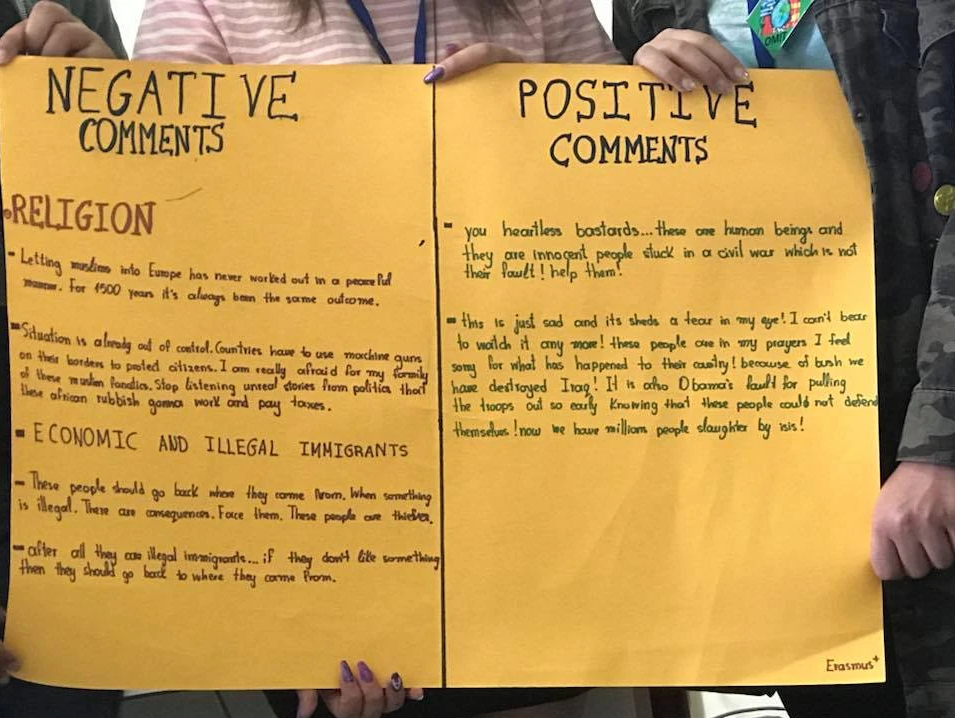 NEGATIVE
COMMENTS
RELIGION
- Letting muslims into Europe has never worked out in a peaceful
manner. For 1500 years it's always been the same outcome.
- Situation is already out of control. Countries have to use machine guns
on their borders to proted citizens. I am really afraid for my family
of these muslim fanatics. Stop listening unreal stories from politics that
these african rubbish gonna work and pay taxes.
- ECONOMIC AND ILLEGAL IMMIGRANTS
- These people should go back where they came from. When something
is illegal. There are consequences. Force them. These people are thieves.
- after all they are illegal immigrants... if they don't like something
then they should go back to where they came from.
POSITIVE
COMMENTS
- you heartless bastards... these are human beings and
they are innocent people stuck in a civil war which is not
their fault! help them!
- this is just sad and its sheds a tear in my eye! I can't bear
to watch it any more! these people are in my prayers I feel
sorry for what has happened to their country! because of bush we
have destroyed Iraq! It is also Obama's fault for pulling
the troops out so early knowing that these people could not defend
themselves! now we have millions people slaughter by isis!
Erasmus+